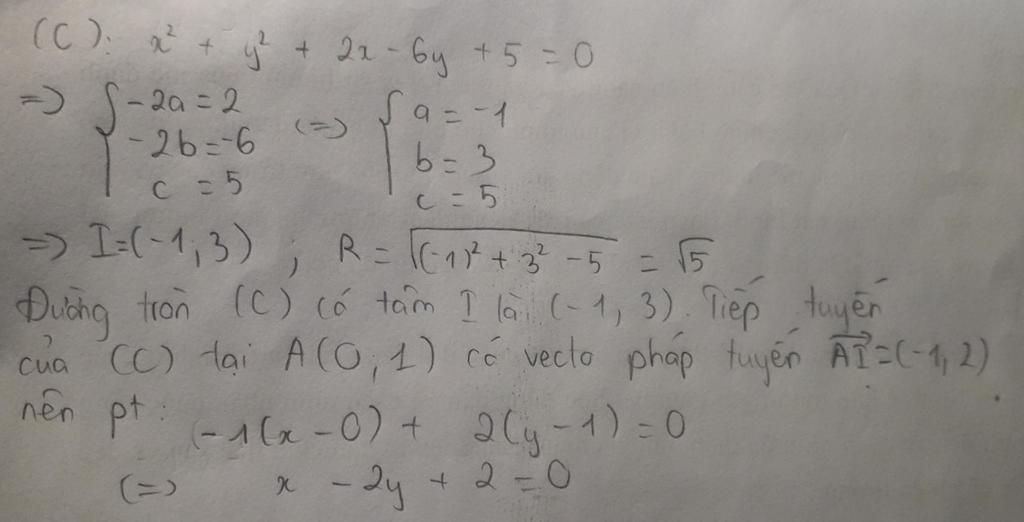 (C): x² + y² + 2x - 6y + 5 = 0
=> { -2a = 2 (=) { a = -1
-2b = -6 b = 3
c = 5 c = 5
=> I = (-1, 3) ; R = √((-1)² + 3² - 5) = √5
Đường tròn (C) có tâm I là (-1, 3). Tiếp tuyến
của (C) tại A(0, 1) có vecto pháp tuyến AI⃗ = (-1, 2)
nên pt:
-1(x - 0) + 2(y - 1) = 0
(=) x - 2y + 2 = 0